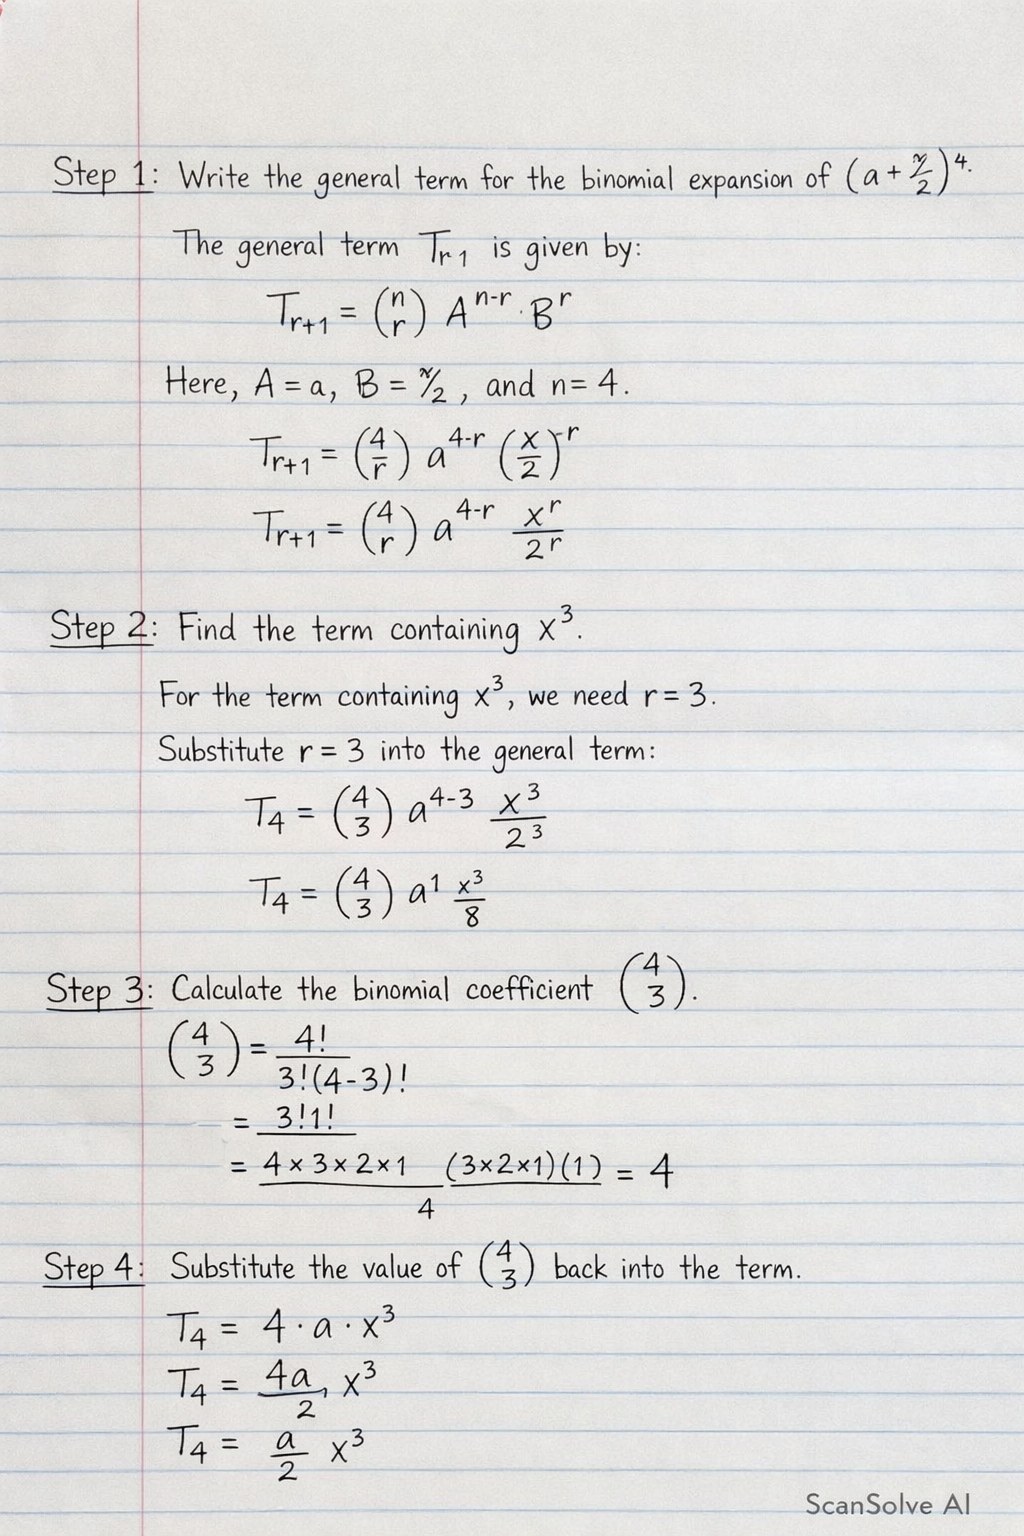 Step 1: Write the general term for the binomial expansion of (a + x/2)^4.
The general term T_r 1 is given by:
T_r+1 = (n r) A^n-r · B^r
Here, A = a, B = x/2, and n = 4.
T_r+1 = (4/r) a^4-r (x/2)^-r
T_r+1 = (4 r) a^4-r x^r/2^r
Step 2: Find the term containing x^3.
For the term containing x^3, we need r = 3.
Substitute r = 3 into the general term:
T_4 = (4 3) a^4-3 x^3/2^3
T_4 = (4 3) a^1 x^3/8
Step 3: Calculate the binomial coefficient (4 3).
(4 3) = 4!/3!(4-3)!
= 3!1!
= 4 × 3 × 2 × 1 (3×2×1)(1) = 4
4
Step 4: Substitute the value of (4 3) back into the term.
T_4 = 4 · a · x^3
T_4 = 4a/2, x^3
T_4 = a/2 x^3
ScanSolve AI